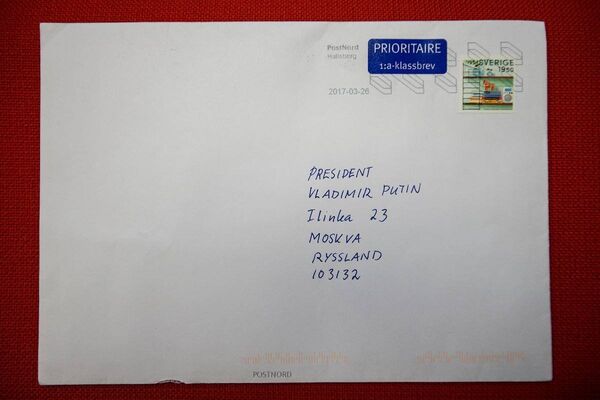 PostNord
Hallsberg
2017-03-26
PRIORITAIRE
1:a-klassbrev
SVERIGE
PRESIDENT
VLADIMIR PUTIN
Ilinka 23
MOSKVA
RYSSLAND
103132
POSTNORD